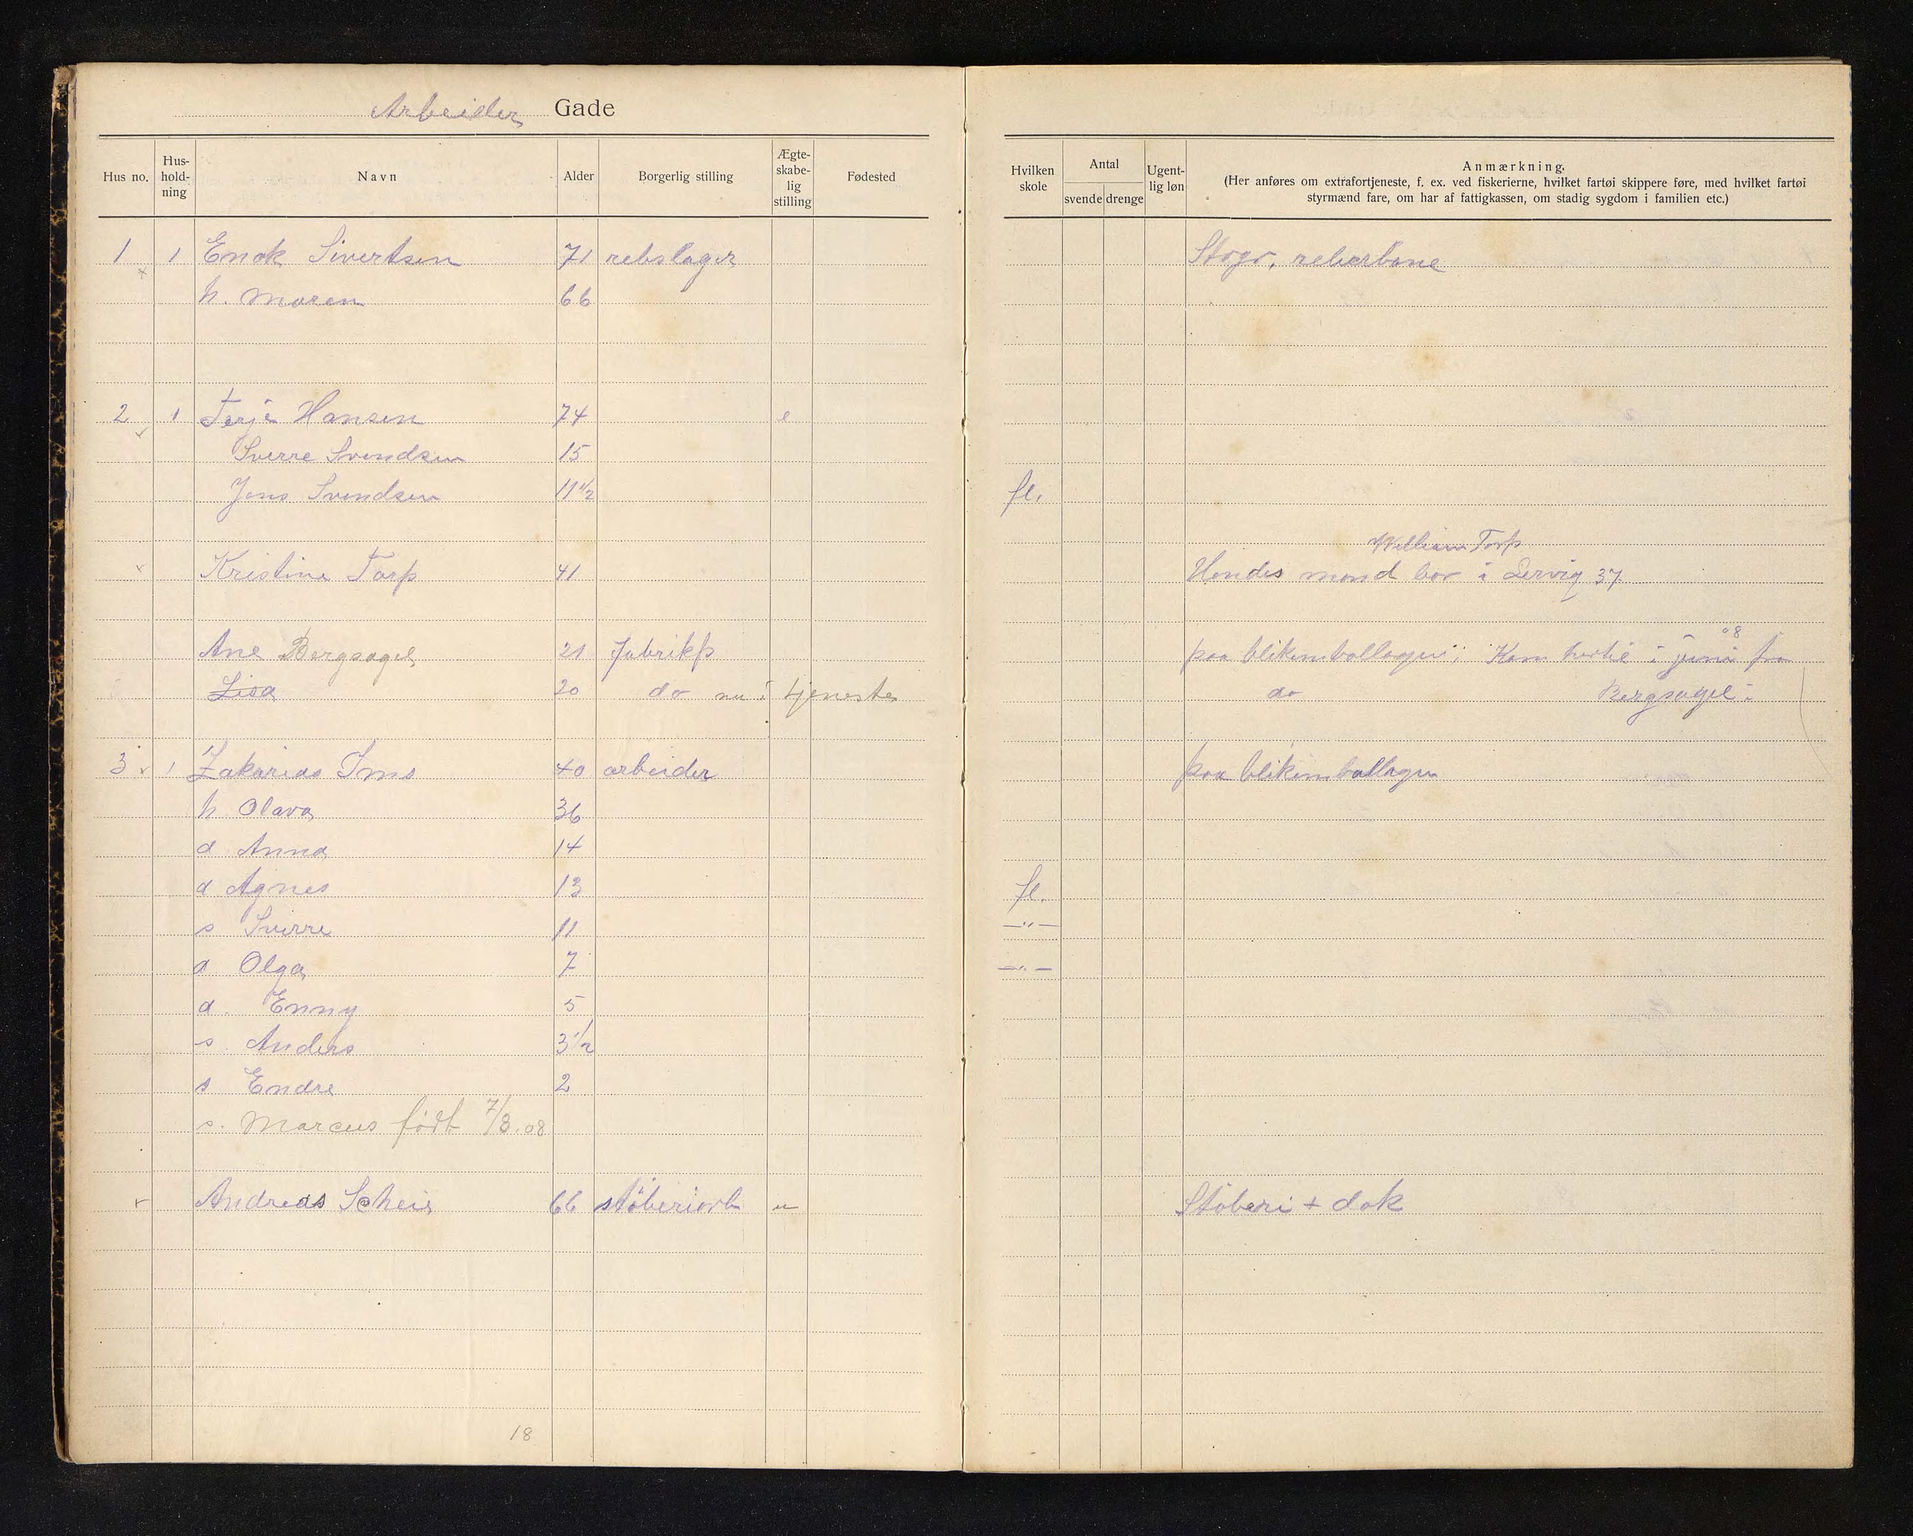 Arbeider Gade
Hus no. Hus-hold-ning Navn Alder Borgerlig stilling Ægte-skabe-lig stilling Fødested
Hvilken skole Antal svende drenge Ugent-lig løn Anmærkning.
(Her anføres om extrafortjeneste, f. ex. ved fiskerierne, hvilket fartøi skippere føre, med hvilket fartøi
styrmænd fare, om har af fattigkassen, om stadig sygdom i familien etc.)
1 1 Enok Sivertsen 71 rebslager
h. Maren 66
2 1 Terje Hansen 74 e
Sverre Svendsen 15
Jens Svendsen 11 1/2 fl.
William Torp
Kristine Torp 41 Hendes mand bor i Lervig 37
Ane Bergsagel 21 fabrikp paa blikemballagen; Kom hertil i juni 08 fra
Lisa 20 do nu i tjeneste do Bergsagel
3 1 Zakarias Ims 40 arbeider paa blikemballagen
h. Olava 36
d Anna 14
d Agnes 13 fl.
s Sverre 11 —"—
d Olga 7 —"—
d. Enny 5
s. Anders 3 1/2
s Endre 2
s. Marcus født 7/8.08
Andreas Scheie 66 støberiarb u Støberi + dok
18